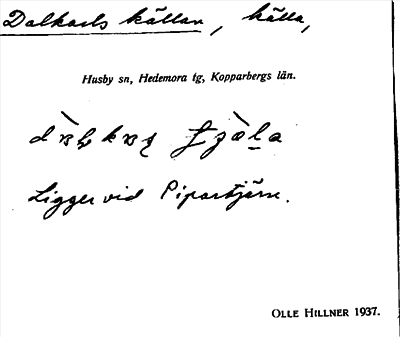 Dalkarls källan, källa,
Husby sn, Hedemora tg, Kopparbergs län.
Ligger vid Piparetjärn.
OLLE HILLNER 1937.